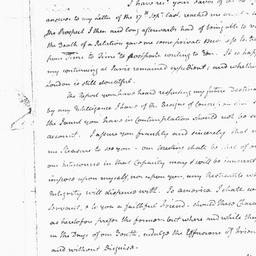 I have rec'd your Favor of
answer to my Letter of the 17th Sept. last, reached me
the Prospect I then and long afterwards had of being able to
the Death of a Relation gave me some private Bus:
from Time to Time to postpone writing to You. It so happ
my continuing at Paris remained expedient; and whether
London is still doubtful.
The report you have heard respecting my future Destinat
by any Intelligence I have of the Design of Congress on that
the Friend you have in contemplation should not be
account. I assure you frankly and sincerely that
me Pleasure to see you. our Meeting shall be that of
our intercourse in that Capacity may & will be innocent
impose upon myself, nor upon you, any Restraints wh
Integrity will dispense with. To America I shall
Servant, & to you a faithful Friend. should these Char
as heretofore prefer the former. but where and while they
in the Days of our Youth, indulge the Effusions of Frien
and without Disguise.